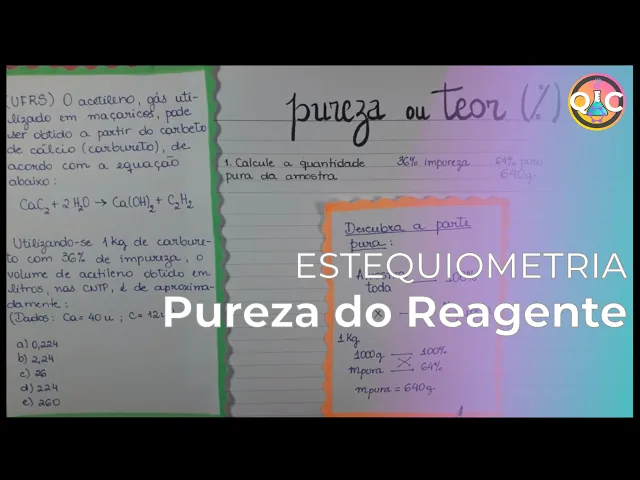 (UFRS) O acetileno, gás uti-
lizado em maçaricos, pode
ser obtido a partir do carbeto
de cálcio (carbureto), de
acordo com a equação
abaixo:
CaC₂ + 2 H₂O → Ca(OH)₂ + C₂H₂
Utilizando-se 1 kg de carbure-
to com 36% de impureza, o
volume de acetileno obtido em
litros, nas CNTP, é de aproxima-
damente:
(Dados: Ca = 40 u ; C = 12u
a) 0,224
b) 2,24
c) 26
d) 224
e) 260
pureza ou teor (%)
QEC
1. Calcule a quantidade 36% impureza 64% puro
pura da amostra 640g
Descubra a parte
pura:
toda 100%
x
1Kg
1000g 100%
mpura 64%
mpura = 640g
ESTEQUIOMETRIA
Pureza do Reagente